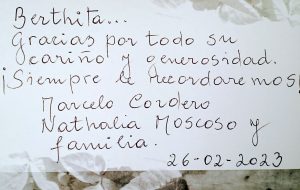 Berthita...
Gracias por todo su
cariño y generosidad.
¡Siempre le recordaremos!
Marcelo Cordero
Nathalia Moscoso y
familia.
26-02-2023